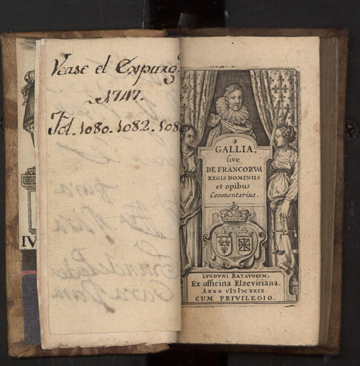 Vease el Expurg.º
1747.
Fol. 1080. 1082. 108
GALLIA,
sive
DE FRANCORVM
REGIS DOMINIIS
et opibus
Commentarius.
LVGDVNI BATAVORVM,
Ex officina Elzeviriana.
ANNO CIƆIƆCXXIX.
CUM PRIVILEGIO.
IV